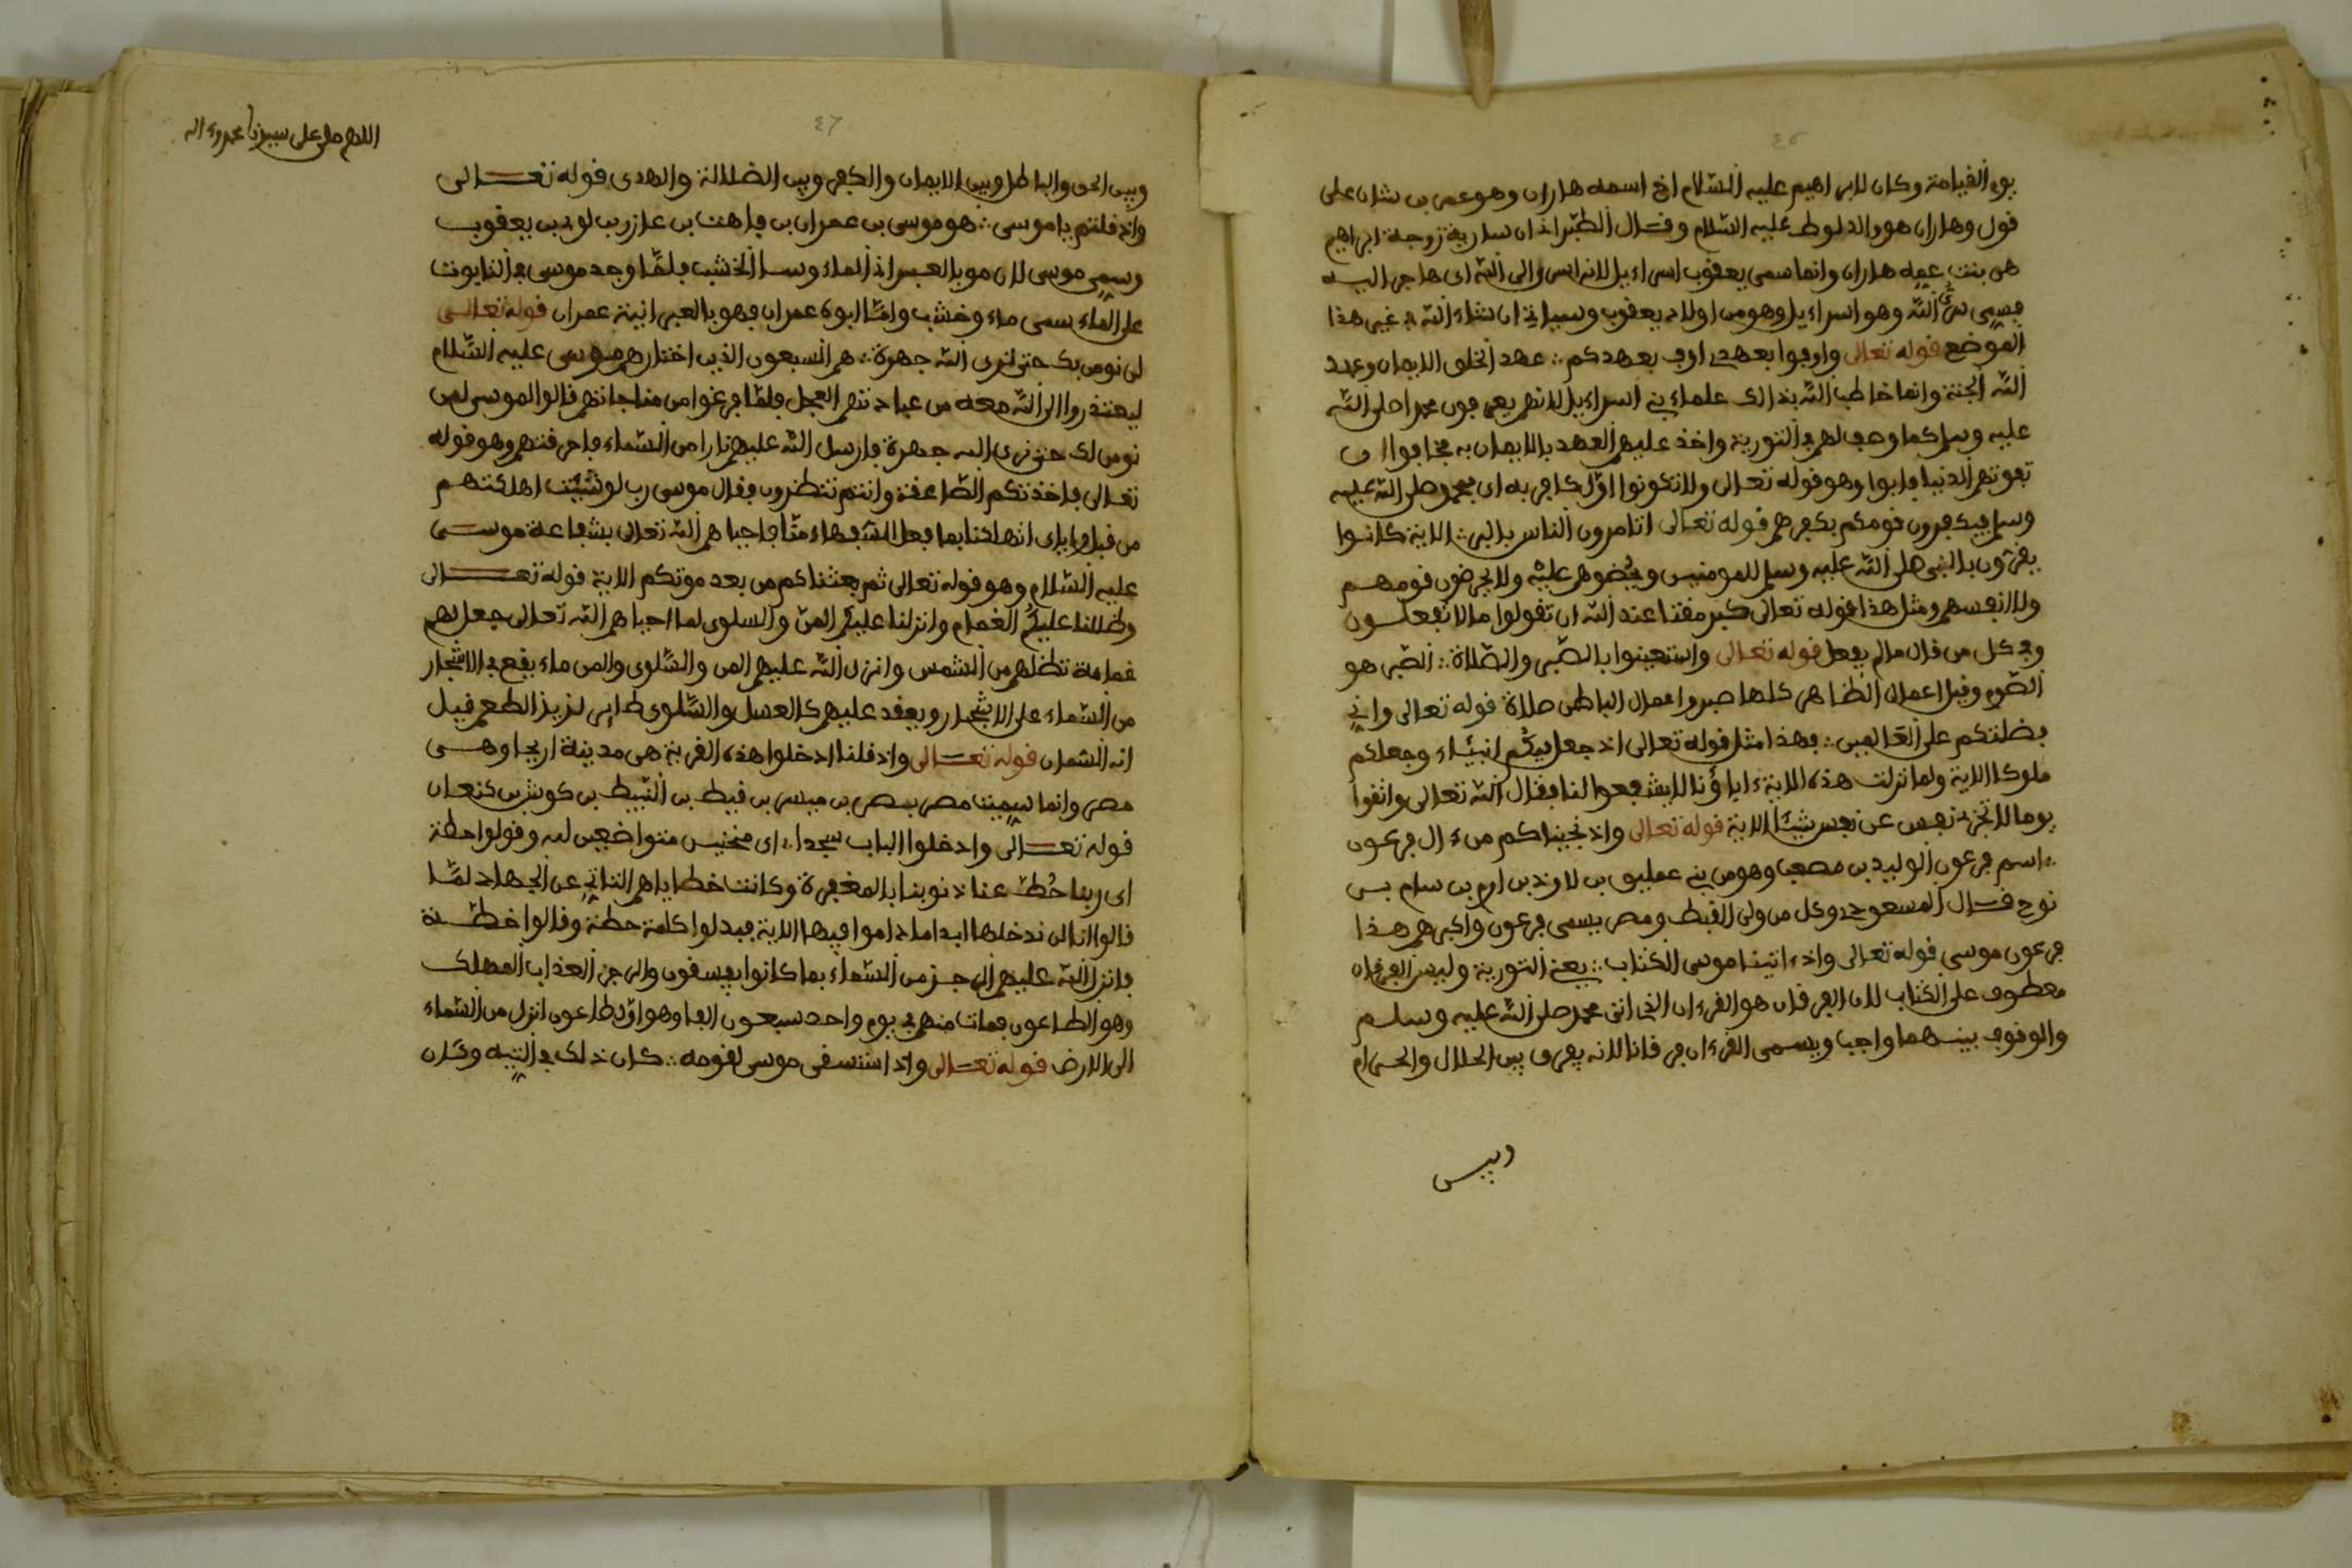 ٤٥
يوم القيامة وكان لابراهيم عليه السّلام اخ اسمه هاران وهو عمر بن شان على
قول وهاران هو والد لوط عليه السّلام وقال الطبرانى ان سارية زوجة ابراهيم
هى بنت عمه هاران وانما سمى يعقوب اسراءيل لانه اسرى الى اللّه اى هاجر اليه
فسمى سرى اللّه وهو اسراءيل وهو من اولاد يعقوب وسياتى ان شاء اللّه فى غير هذا
الموضع قوله تعالى واوفوا بعهدى اوف بعهدكم عهد الخلق الايمان وعهد
اللّه الجنة وانما خاطب اللّه بذالك علماء بنى اسراءيل لانهم يعرفون محمدا صلى اللّه
عليه وسلم كما وصف لهم فى التورية واخذ عليهم العهد بالايمان به فخافوا ان
تفوتهم الدنيا فابوا وهو قوله تعالى ولا تكونوا اوّل كافر به اى بمحمد صلى اللّه عليه
وسلم فيكفرون قومكم بكفرهم قوله تعالى اتامرون الناس بالبر الاية كانوا
يقرّون بالنبى صلى اللّه عليه وسلم للمومنين ويحضوهم عليه ولا يحرضون قومهم
ولا انفسهم ومثل هذا قوله تعالى كبر مقتا عند اللّه ان تقولوا ما لا تفعلون
وفى كل من قال ما لم يفعل قوله تعالى واستعينوا بالصّبر والصّلاة الصّبر هو
الصّوم وقيل اعمال الظاهر كلها صبر واعمال الباطن صلاة قوله تعالى وانى
فضلتكم على العالمين فهذا مثل قوله تعالى اذ جعل فيكم انبياء وجعلكم
ملوكا الاية ولما نزلت هذه الاية ءاباؤنا لا يشفعوا لنا فقال اللّه تعالى واتقوا
يوما لا تجزى نفس عن نفس شيئا الاية قوله تعالى واذ نجيناكم من ءال فرعون
اسم فرعون الوليد بن مصعب وهو من بنى عمليق بن لاوذ بن ارم بن سام بن
نوح قال المسعودى وكل من ولى القبط ومصر يسمى فرعون واكبرهم هذا
فرعون موسى قوله تعالى واذ ءاتينا موسى الكتاب يعنى التورية وليس الفرقان
معطوف على الكتاب لان الفرقان هو القرءان الذى اتى محمد صلى اللّه عليه وسلم
والوقوف بينهما واجب ويسمى القرءان فرقانا لانه يفرق بين الحلال والحرام
وبين
٤٦
اللهم صل على سيدنا محمد وءاله
وبين الحق والباطل وبين الايمان والكفر وبين الضلالة والهدى قوله تعالى
واذ قلتم ياموسى هو موسى بن عمران بن قاهت بن عازر بن لوى بن يعقوب
وسمى موسى لان مو بالعبرانى الماء وسا الخشب فلمّا وجد موسى فى التابوت
على الماء سمى ماء وخشب وامّا ابوه عمران فهو بالعبرانية عمران قوله تعالى
لن نومن بك حتى نرى اللّه جهرة هم السبعون الذين اختارهم موسى عليه السّلام
ليعتذروا الى اللّه معه من عبادتهم العجل فلمّا فرغوا من مناجاتهم قالوا لموسى لن
نومن لك حتى نرى اللّه جهرة فارسل اللّه عليهم نارا من السّماء فاحرقتهم وهو قوله
تعالى فاخذتكم الصّاعقة وانتم تنظرون فقال موسى رب لو شئت اهلكتهم
من قبل واياى اتهلكنا بما فعل السّفهاء منّا فاحياهم اللّه تعالى بشفاعة موسى
عليه السّلام وهو قوله تعالى ثم بعثناكم من بعد موتكم الاية قوله تعالى
وظللنا عليكم الغمام وانزلنا عليكم المنّ والسلوى لما احياهم اللّه تعالى جعل لهم
غمامة تظلهم من الشمس وانزل اللّه عليهم المن والسّلوى والمن ماء يقع فى الاشجار
من السّماء على الاشجار ويعقد عليهم كالعسل والسّلوى طاير لذيذ الطعم قيل
انه السّمان قوله تعالى واذ قلنا ادخلوا هذه القرية هى مدينة اريحا وهى
مصر وانما سميت مصر بمصر بن ميسر بن قبط بن النبيط بن كوش بن كنعان
قوله تعالى وادخلوا الباب سجدا اى منحنيين متواضعين لله وقولوا حطة
اى ربنا حُطّ عنا ذنوبنا بالمغفرة وكانت خطاياهم التاتى عن الجهاد لمّا
قالوا انا لن ندخلها ابدا ما داموا فيها الاية فبدلوا كلمة حطة وقالوا خطئة
فانزل اللّه عليهم الرجز من السّماء بما كانوا يفسقون والرجز العذاب المهلك
وهو الطاعون فمات منهم فى يوم واحد سبعون الفا وهو اوّل طاعون انزل من السّماء
الى الارض قوله تعالى واذ استسقى موسى لقومه كان ذلك فى التيه وكان